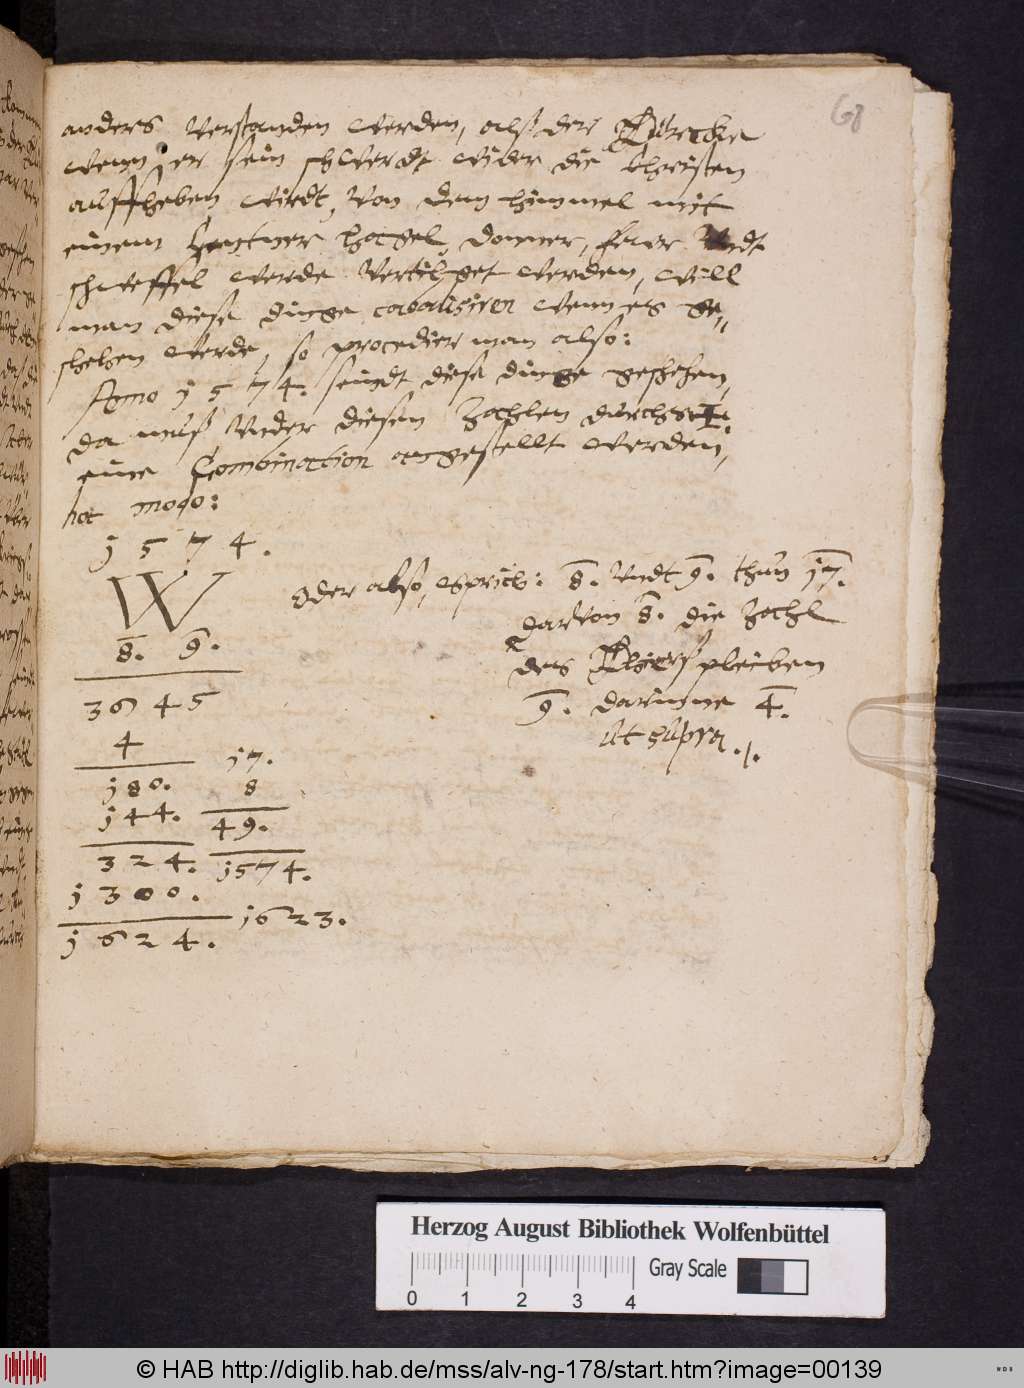 68
anders verstanden werden, alß der Türcke
wenn er sein schwerdt wider die Christen
auffheben wirdt, von dem himmel mit
einem Centner hagel, donner, feuer vndt
schweffel werde vertilget werden, will
man diese dinge cabalisiren wenn es ge„
schehen werde, so procedier man also:
Anno 1574. seindt diese dinge geschehen,
da muß vnder diesen zahlen
eine Combination angestellt werden,
hoc modo:
1 5 7 4.
W
8. 9.
3645
4
180.
144.
324.
1300.
1624.
17.
8
49.
1574.
1623.
Oder also, sprich: 8. vndt 9. thun 17.
darvon 8. die zahl
des Thiers pleiben
9. darinne 4.
ut supra ./.
Herzog August Bibliothek Wolfenbüttel
Gray Scale
0 1 2 3 4
© HAB http://diglib.hab.de/mss/alv-ng-178/start.htm?image=00139